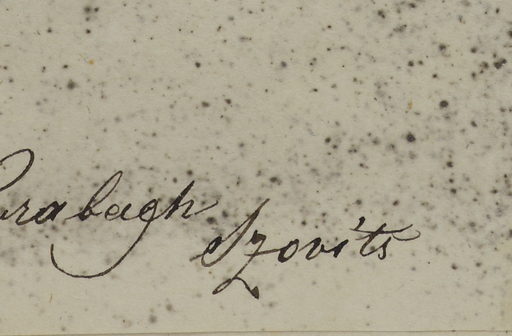 arabagh
Szovits